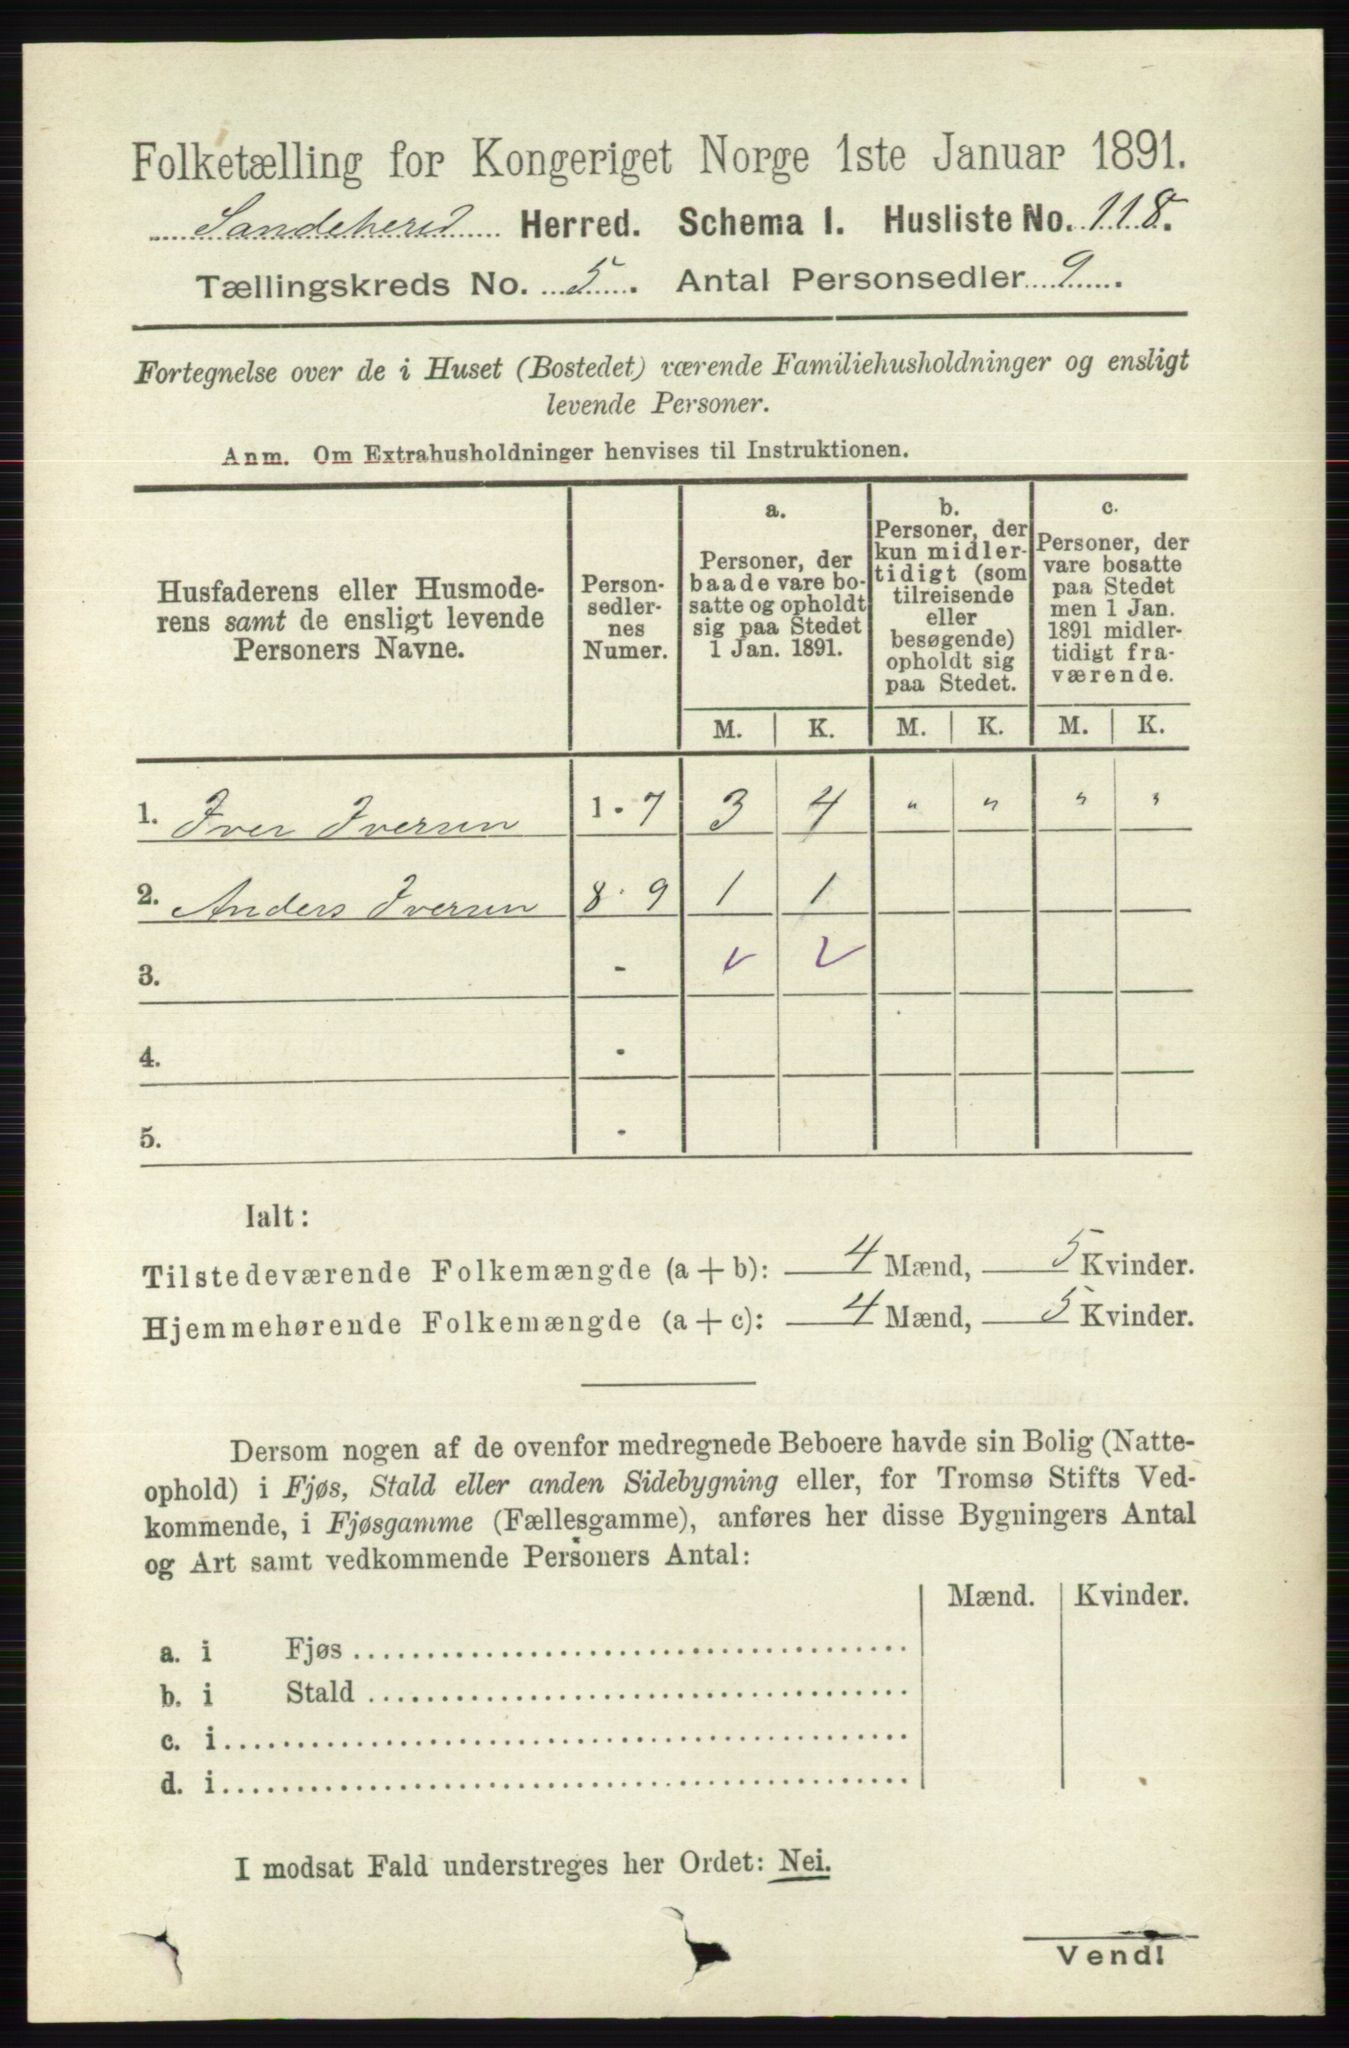 Folketælling for Kongeriget Norge 1ste Januar 1891.
Sandeherred Herred. Schema I. Husliste No. 118.
Tællingskreds No. 5. Antal Personsedler 9.
Fortegnelse over de i Huset (Bostedet) værende Familiehusholdninger og ensligt
levende Personer.
Anm. Om Extrahusholdninger henvises til Instruktionen.
Husfaderens eller Husmode-
rens samt de ensligt levende
Personers Navne.
Person-
sedler-
nes
Numer.
a.
Personer, der
baade vare bo-
satte og opholdt
sig paa Stedet
1 Jan. 1891.
b.
Personer, der
kun midler-
tidigt (som
tilreisende
eller
besøgende)
opholdt sig
paa Stedet.
c.
Personer, der
vare bosatte
paa Stedet
men 1 Jan.
1891 midler-
tidigt fra-
værende.
M. K. M. K. M. K.
1. Iver Iversen 1 - 7 3 4 " " " "
2. Anders Iversen 8 - 9 1 1
3. - ✓ ✓
4. -
5. -
Ialt:
Tilstedeværende Folkemængde (a + b): 4 Mænd, 5 Kvinder.
Hjemmehørende Folkemængde (a + c): 4 Mænd, 5 Kvinder.
Dersom nogen af de ovenfor medregnede Beboere havde sin Bolig (Natte-
ophold) i Fjøs, Stald eller anden Sidebygning eller, for Tromsø Stifts Ved-
kommende, i Fjøsgamme (Fællesgamme), anføres her disse Bygningers Antal
og Art samt vedkommende Personers Antal:
Mænd. Kvinder.
a. i Fjøs
b. i Stald
c. i
d. i
I modsat Fald understreges her Ordet: Nei.
Vend!